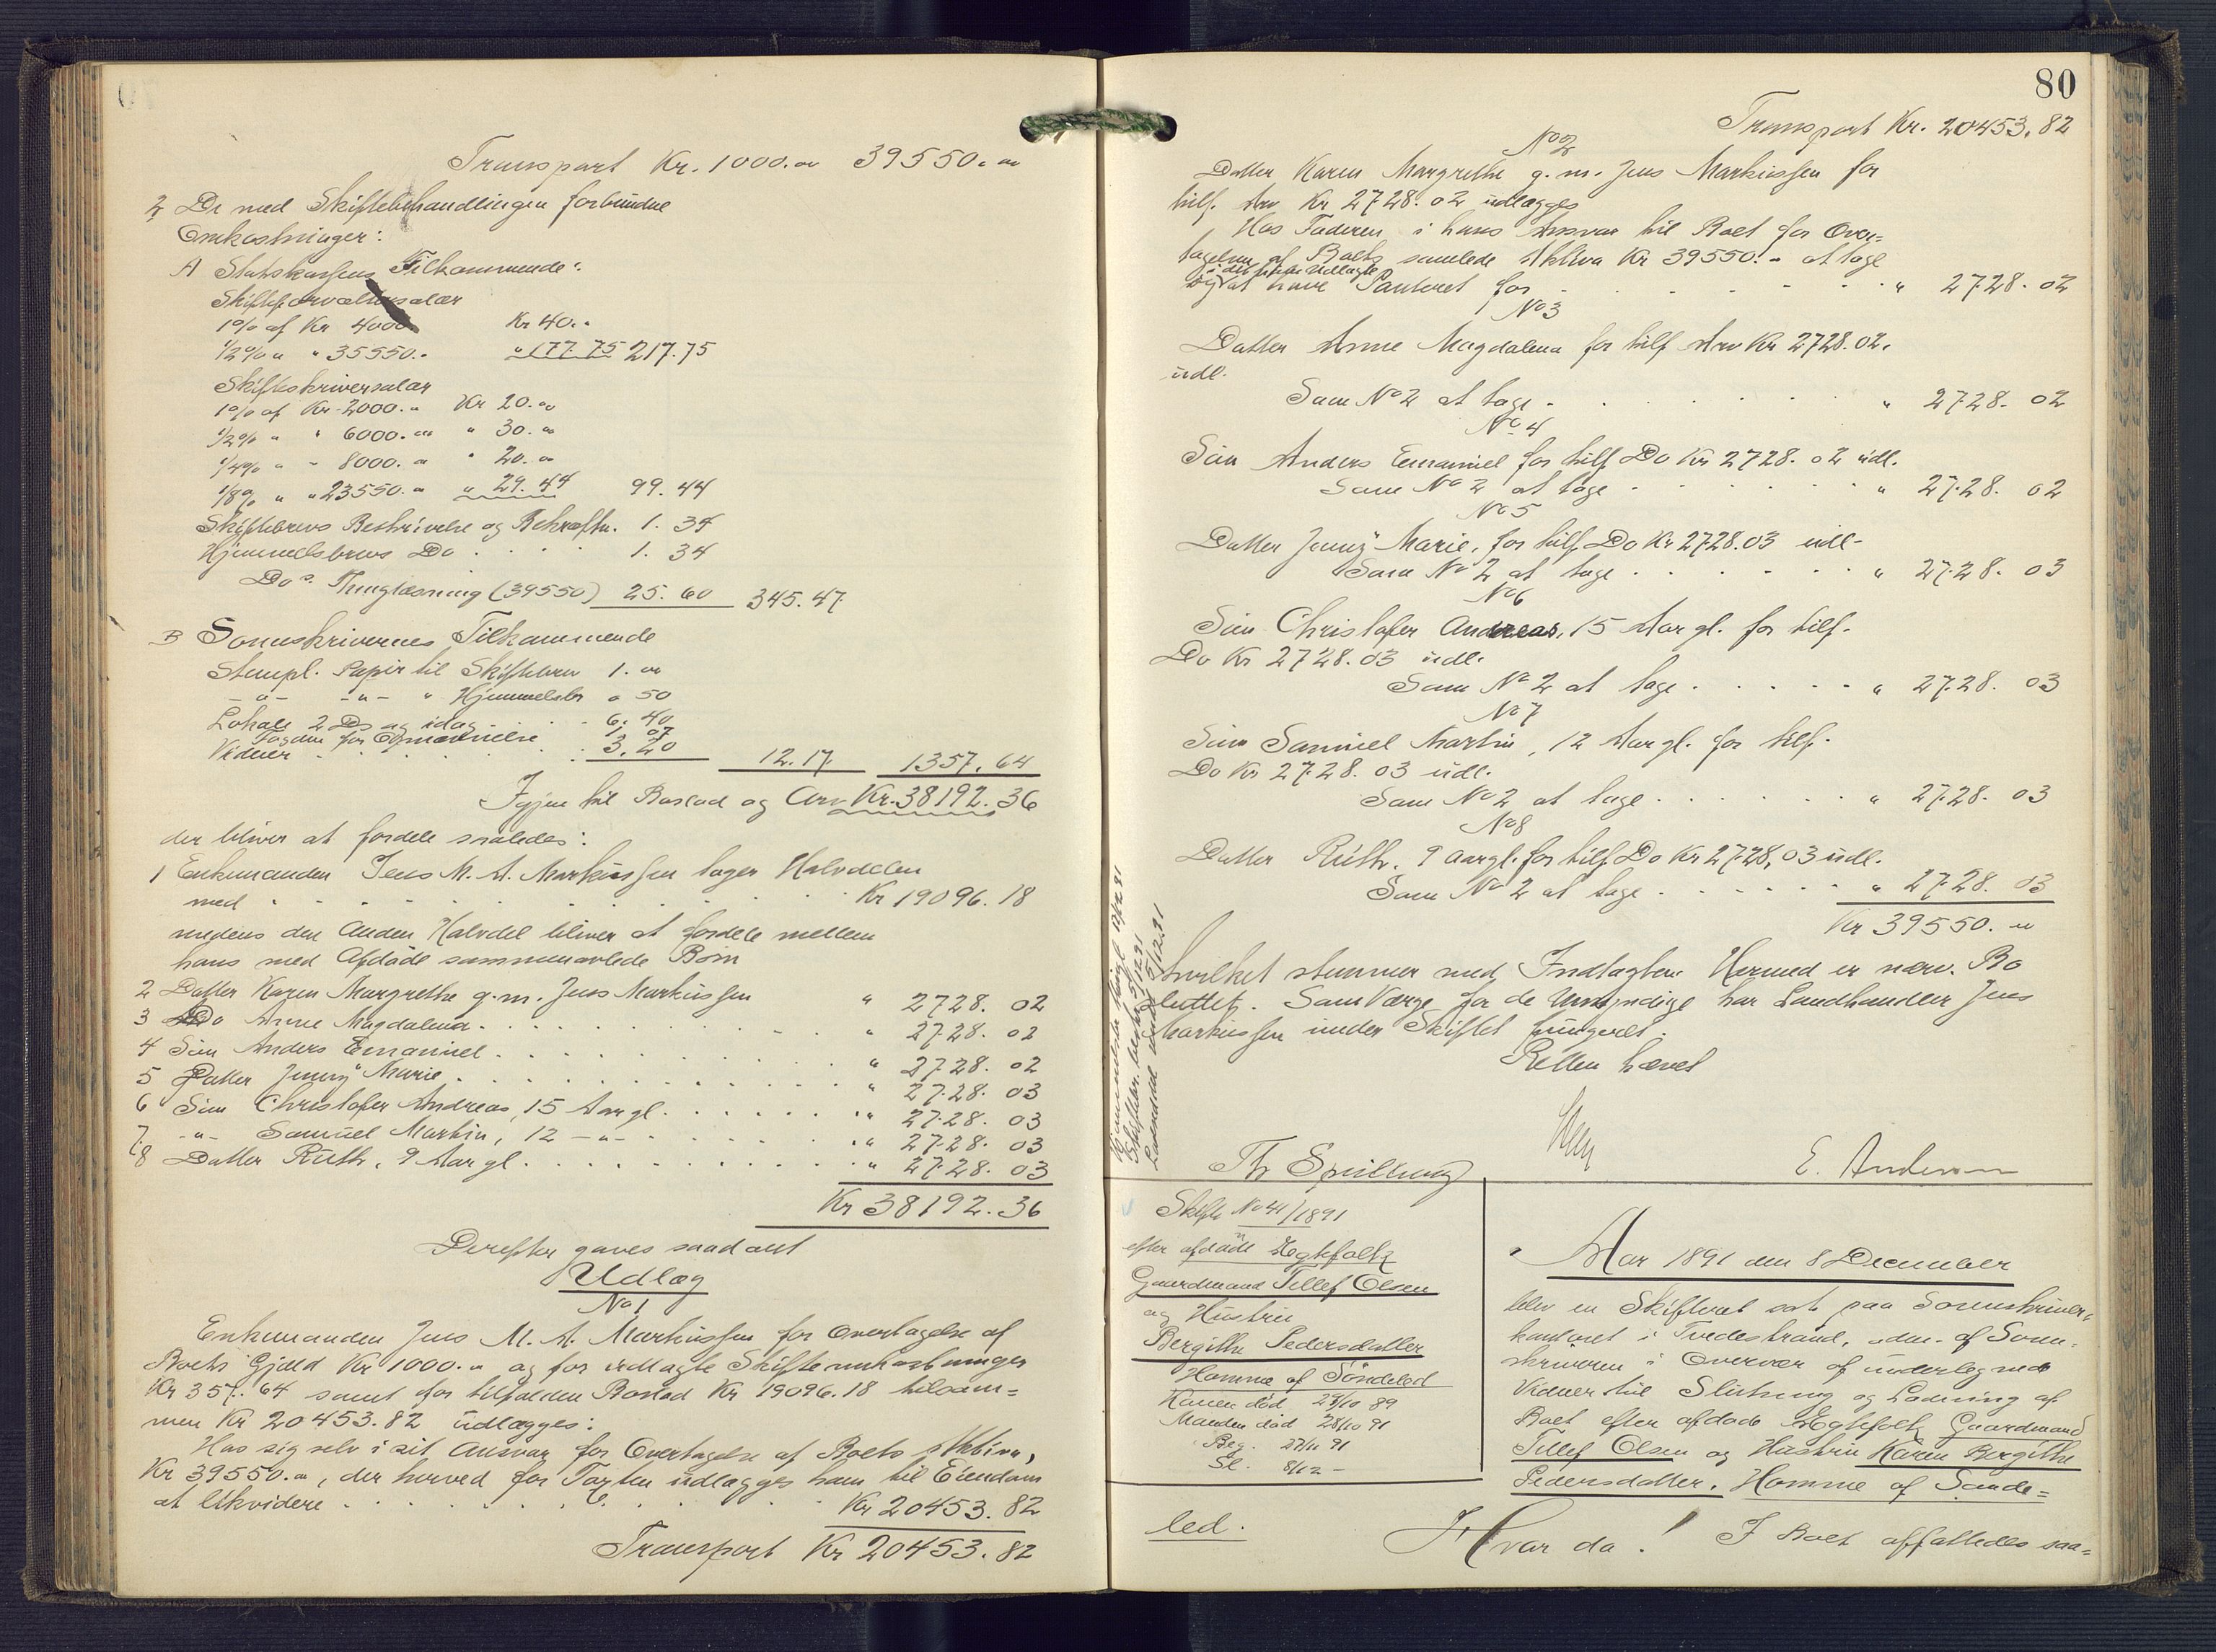 Transport Kr. 1000.00 39550.00
2 De med Skiftebehandlingen forbundne
Omkostninger:
A Statskassens Tilkommende:
Skifteforvaltersalær
1% af Kr 4000 Kr 40.„
1/2% „ „ 35550.„ „ 177.75 217.75
Skifteskriversalær
1% af Kr. 2000.„ Kr 20.00
1/2% „ „ 6000.00 „ 30.00
1/4% „ „ 8000.„ „ 20.00
1/8% „ „ 23550.„ „ 29.44 99.44
Skiftebrevs Beskrivelse og Bekræftn. 1.34
Hjemmelsbrevs Do . . . . 1.34
Dos. Thinglæsning (39550) 25.60 345.47
B Sorenskriverens Tilkommende
Stempl. Papir til Skiftebrev 1.00
-„- -„- „ Hjemmelsbr „ 50
Lokale 2 D og idag . . 6.40
1.07
Vidner . . . . . . 3.20 12.17 1357.64
Igjen til Boslod og Arv Kr. 38192.36
der bliver at fordele saaledes:
1 Enkemanden Jens M. A. Markussen tager Halvdelen
med . . . . . . . Kr 19096.18
medens den anden Halvdel bliver at fordele mellem
hans med Afdøde sammenavlede Børn
2 Datter Karen Margrethe g. m. Jens Markussen „ 2728.02
3 Do Anne Magdalena . . . . . . „ 2728.02
4 Søn Anders Emanuel . . . . . . „ 2728.02
5 Datter Jenny Marie . . . . . . „ 2728.03
6 Søn Christofer Andreas, 15 Aar gl. . . . . „ 2728.03
7 -„- Samuel Martin, 12 -„- . . . . „ 2728.03
8 Datter Ruth, 9 Aar gl. . . . . . „ 2728.03
Kr 38192.36
Derefter gaves saadant
Udlæg
No 1
Enkemanden Jens M. A. Markussen for Overtagelse af
Boets Gjæld Kr 1000.„ og for udlagte Skifteomkostninger
Kr 357.64 samt for tilfalden Boslod Kr 19096.18 tilsam=
men Kr 20453.82 udlægges:
Hos sig selv i sit Ansvar for Overtagelse af Boets Aktiva,
Kr 39550.„, der herved for Taxten udlægges ham til Eiendom
at likvidere . . . . . . Kr 20453.82
Transport Kr 20453.82
80
Transport Kr. 20453.82
No 2
Datter Karen Margrethe g. m. Jens Markussen for
tilf. Arv Kr 2728.02 udlægges
Hos Faderen i hans Ansvar til Boet for Over=
tagelsen af Boets samlede Aktiva Kr 39550.„ at tage
i det ham udlagte
og at have Panteret for . . . . . „ 2728.02
No 3
Datter Anne Magdalena for tilf Arv Kr 2728.02.
udl.
Som No 2 at tage . . . . . „ 2728.02
No 4
Søn Anders Emanuel for tilf Do Kr 2728.02 udl.
Som No 2 at tage . . . . . „ 2728.02
No 5
Datter Jenny Marie, for tilf Do Kr 2728.03 udl.
Som No 2 at tage . . . . . „ 2728.03
No 6
Søn Christofer Andreas, 15 Aar gl. for tilf.
Do Kr 2728.03 udl.
Som No 2 at tage . . . . . „ 2728.03
No 7
Søn Samuel Martin, 12 Aar gl. for tilf.
Do Kr 2728.03 udl.
Som No 2 at tage . . . . . „ 2728.03
No 8
Datter Ruth, 9 Aar gl. for tilf Do Kr 2728.03 udl.
Som No 2 at tage . . . . . „ 2728.03
Kr 39550.„
hvilket stemmer med Indtægten. Hermed er nærv. Bo
sluttet. Som Værge for de Umyndige har Landhandler Jens
Markussen under Skiftet fungeret.
Retten hævet
E. Andersen
Skifte No 41/1891
efter afdøde Ægtefolk
Gaardmand Tellef Olsen
og Hustru
Bergithe Pedersdatter
Homme af Søndeled
Konen død 24/10 89
Manden død 28/10 91
Beg. 27/11 91
Sl. 8/12 -
Aar 1891 den 8 December
blev en Skifteret sat paa Sorenskriver=
kontoret i Tvedestrand, adm. af Soren=
skriveren i Overvær af undertegnede
Vidner til Slutning og Lodning af
Boet efter afdøde Ægtefolk Gaardmand
Tellef Olsen og Hustru Karen Bergithe
Pedersdatter, Homme af Sønde=
led.
Hvor da! I Boet affattedes saa=